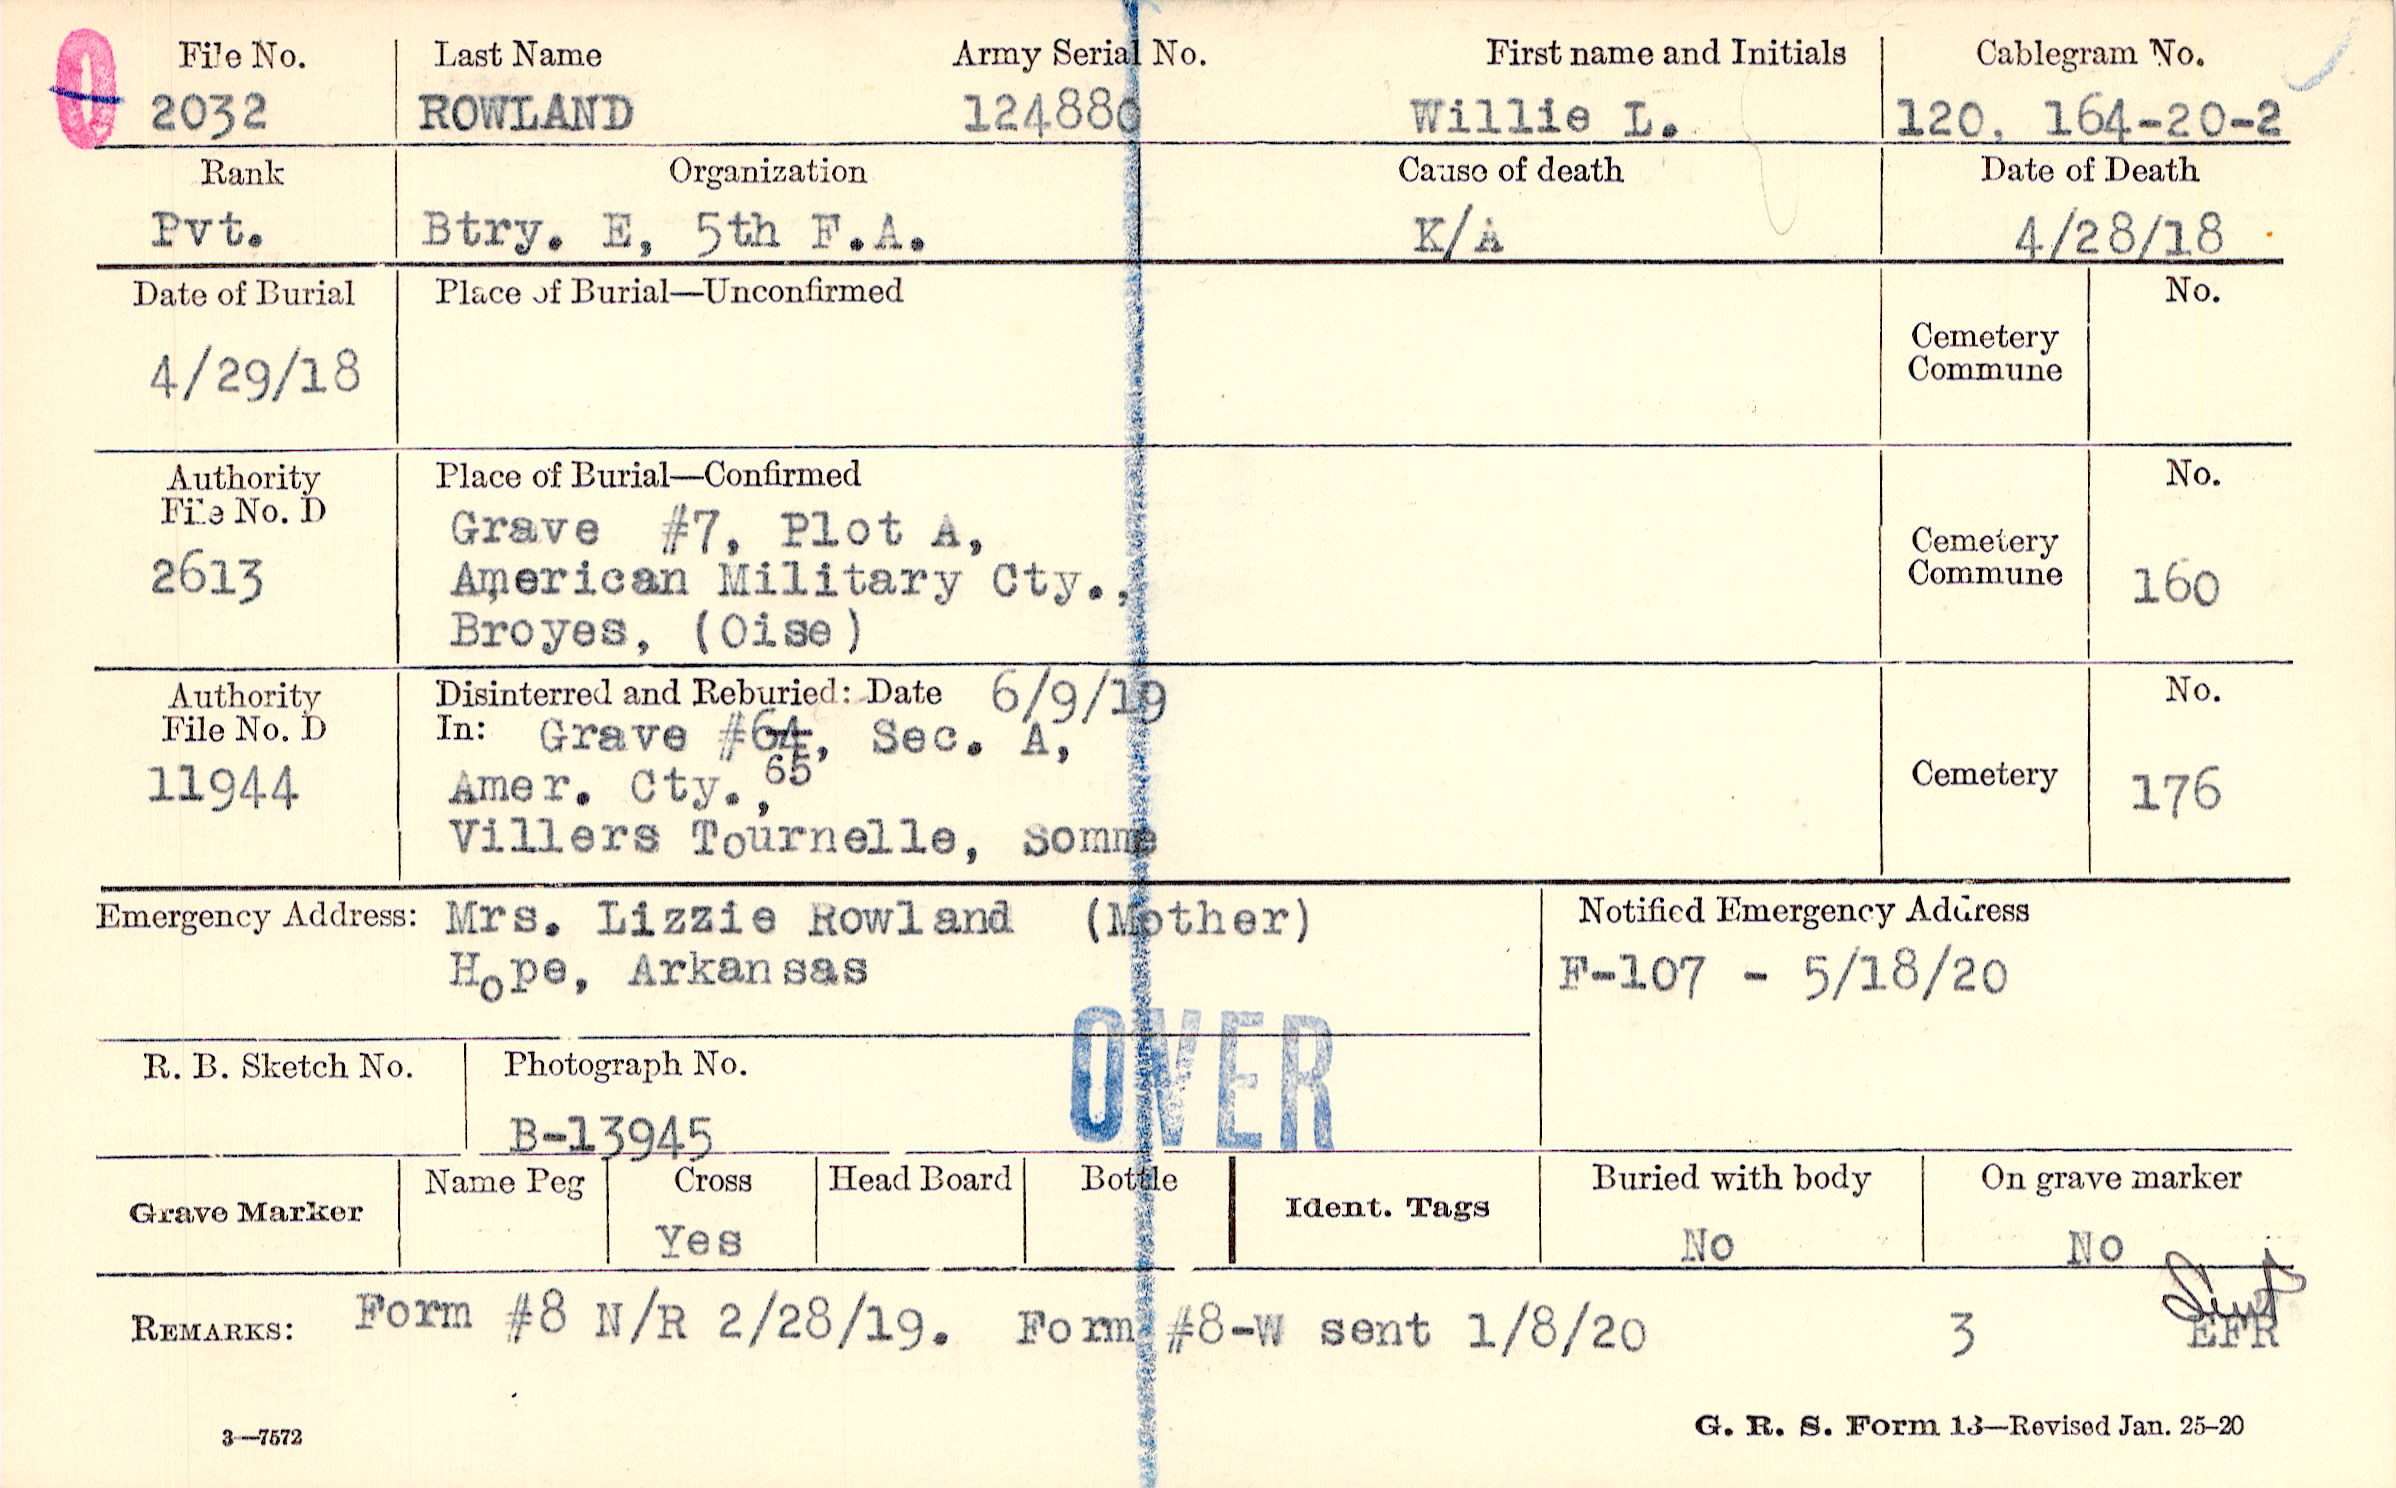 0
File No. Last Name Army Serial No. First name and Initials Cablegram No.
2032 ROWLAND 124880 Willie L. 120, 164-20-2
Rank Organization Cause of death Date of Death
Pvt. Btry. E, 5th F.A. K/A 4/28/18
Date of Burial Place of Burial—Unconfirmed No.
Cemetery
Commune
4/29/18
Authority Place of Burial—Confirmed No.
File No. D
Grave #7, Plot A,
Cemetery
Commune
2613 American Military Cty., 160
Broyes, (Oise)
Authority Disinterred and Reburied: Date 6/9/19 No.
File No. D In: Grave #64, Sec. A,
65
11944 Amer. Cty., Cemetery 176
Villers Tournelle, Somme
Emergency Address: Mrs. Lizzie Rowland (Mother) Notified Emergency Address
Hope, Arkansas F-107 - 5/18/20
OVER
R. B. Sketch No. Photograph No.
B-13945
Grave Marker Name Peg Cross Head Board Bottle Ident. Tags Buried with body On grave marker
Yes No No
REMARKS: Form #8 N/R 2/28/19. Form #8-W sent 1/8/20 3 EFR
Sent
3—7572 G. R. S. Form 13—Revised Jan. 25-20